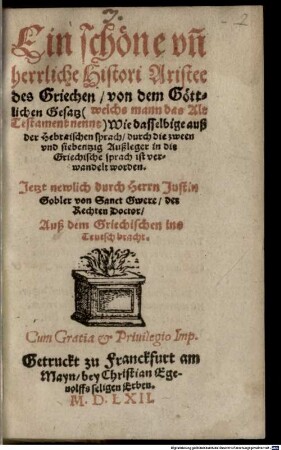 2
Ein schöne vñ
herrliche Histori Aristee
des Griechen / von dem Gött-
lichen Gesatz (welchs mann das Alt
Testament nennt) Wie dasselbige auß
der Hebraischen sprach / durch die zween
vnd siebentzig Außleger in die
Griechische sprach ist ver-
wandelt worden.
Jetzt newlich durch Herrn Justin
Gobler von Sanct Gwere / der
Rechten Doctor /
Auß dem Griechischen ins
Teutsch bracht.
Cum Gratia & Priuilegio Imp.
Getruckt zu Franckfurt am
Mayn / bey Christian Ege-
nolffs seligen Erben.
M. D. LXII.